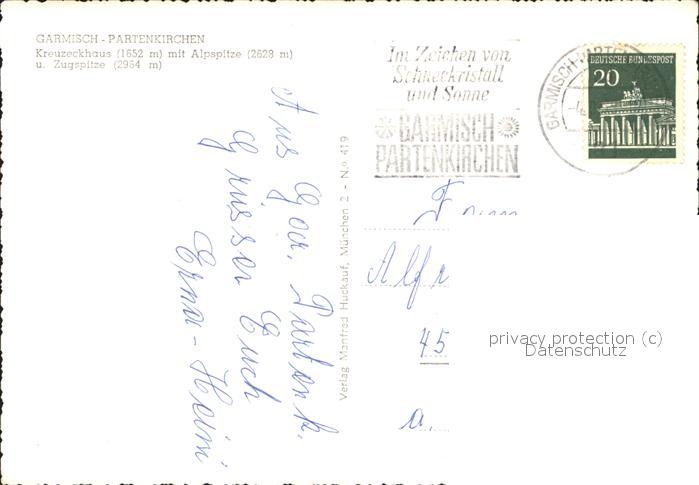 GARMISCH - PARTENKIRCHEN
Kreuzeckhaus (1652 m) mit Alpspitze (2628 m)
u. Zugspitze (2964 m)
Im Zeichen von
Schneekristall
und Sonne
GARMISCH
PARTENKIRCHEN
GARMISCH-PARTEN
DEUTSCHE BUNDESPOST
20
Aus Gar. Partenk.
Grüssen Euch
Erna - Heini
Verlag Manfred Huckauf, München 2 - N.º 419
Fam
Alfr
45
a.
privacy protection (c)
Datenschutz